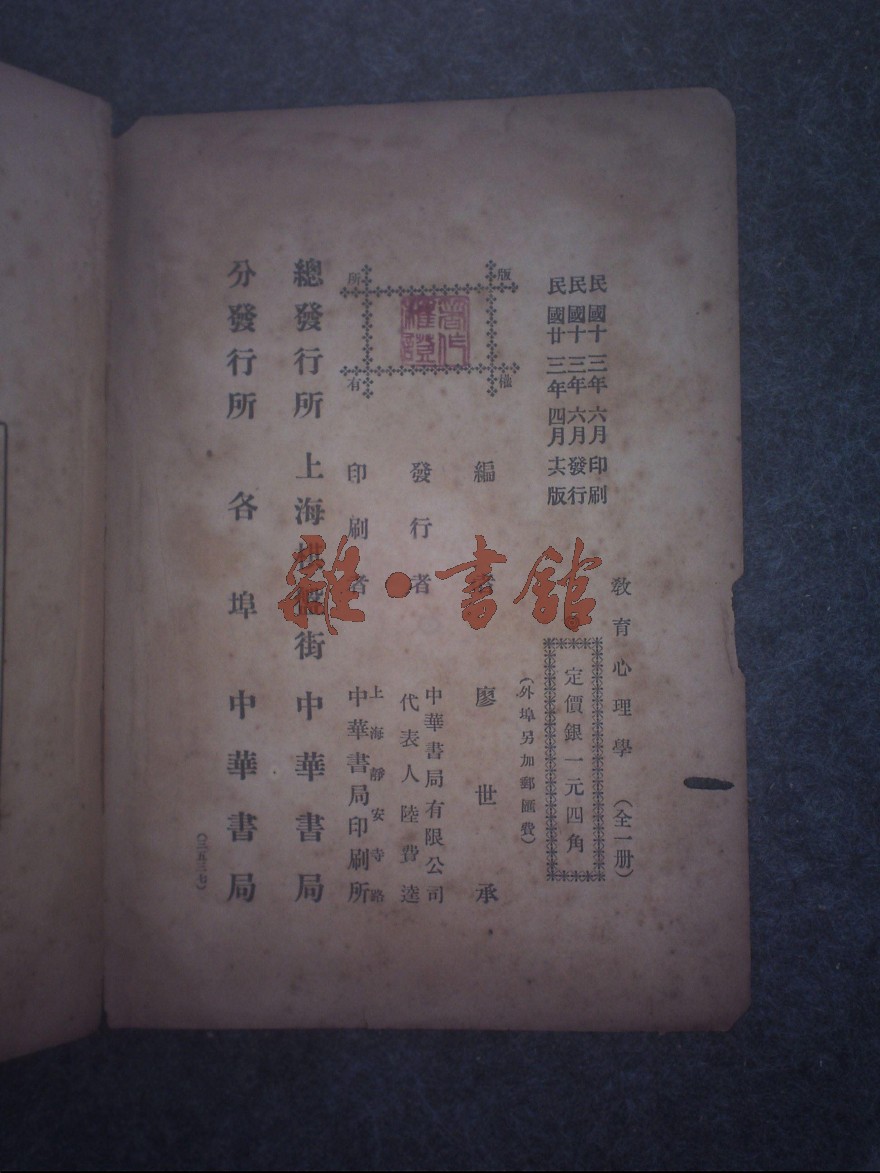 民國十三年六月印刷
民國十三年六月發行
民國廿三年四月十六版
教育心理學（全一册）
定價銀一元四角
（外埠另加郵匯費）
版權所有
著作權證
編者 廖世承
發行者 中華書局有限公司
代表人陸費逵
印刷者 上海靜安寺路
中華書局印刷所
總發行所 上海棋盤街 中華書局
分發行所 各埠 中華書局
（三五三七）
雜·書館